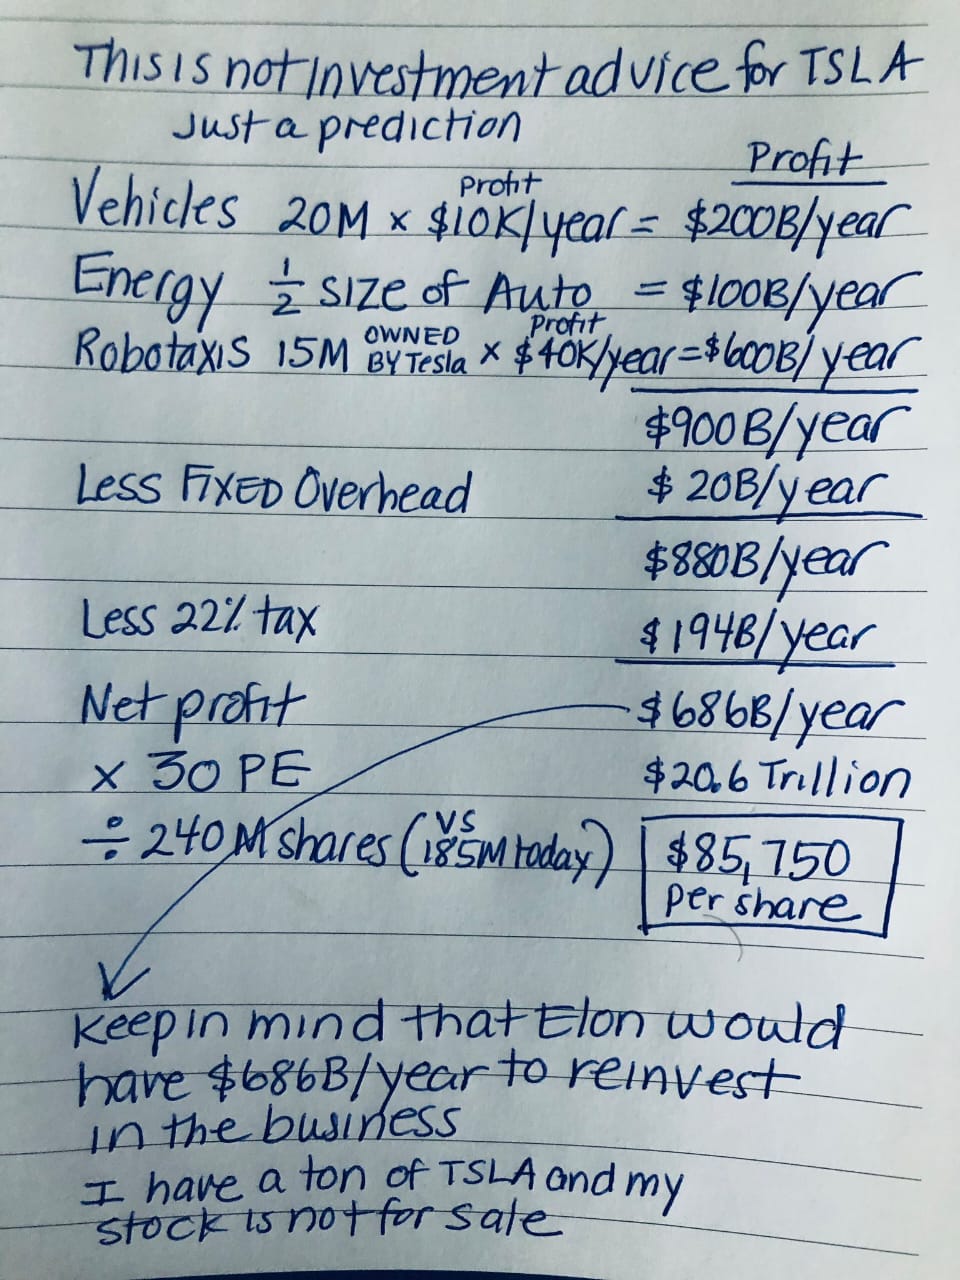 This is not investment advice for TSLA
Just a prediction
Profit
Vehicles 20M x $10K/year = $200B/year
Profit
Energy 1/2 size of Auto = $100B/year
Robotaxis 15M OWNED BY Tesla x $40K/year = $600B/year
Profit
$900B/year
Less FIXED Overhead $20B/year
$880B/year
Less 22% tax $194B/year
Net profit $686B/year
x 30 PE $20.6 Trillion
÷ 240M shares (vs 185M today) $85,750
per share
Keep in mind that Elon would
have $686B/year to reinvest
in the business
I have a ton of TSLA and my
stock is not for sale